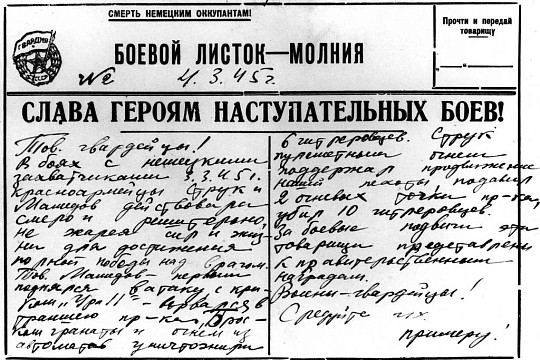 СМЕРТЬ НЕМЕЦКИМ ОККУПАНТАМ!
ГВАРДИЯ
БОЕВОЙ ЛИСТОК—МОЛНИЯ
№2 4.3.45г.
Прочти и передай
товарищу
СЛАВА ГЕРОЯМ НАСТУПАТЕЛЬНЫХ БОЕВ!
Тов. гвардейцы!
В боях с немецкими
захватчиками 3.3.45г.
красноармейцы Струк и
Мамедов действовали
смело и решительно,
не жалея сил и жиз-
ни для достижения
полной победы над врагом.
Тов. Мамедов первым
поднялся в атаку с кри-
ком "Ура!!" ворвался в
траншею пр-ка, Брос-
ком гранаты и огнем из
автомата уничтожил
6 гитлеровцев. Струк
пулеметным огнем
поддержал продвижение
нашей пехоты подавил
2 огневых точки пр-ка,
убил 10 гитлеровцев.
За боевые подвиги эти
товарищи представлены
к правительственным
наградам.
Воины-гвардейцы!
Следуйте их
примеру!